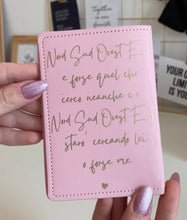 Nord Sud Ovest Est
e forse quel che
cerco neanche c'è
Nord Sud Ovest Est
starò cercando lei
o forse me